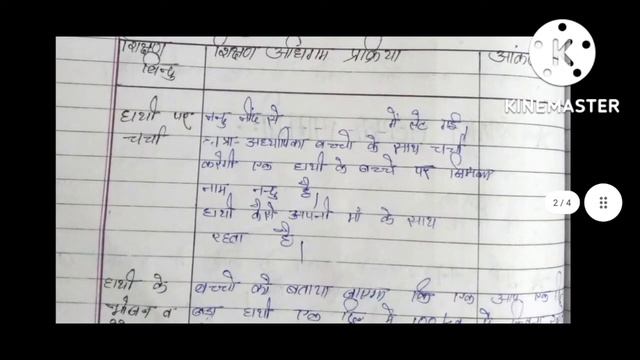 शिक्षण बिन्दु
शिक्षण अधिगम प्रक्रिया
KINEMASTER
हाथी पर चर्चा
नन्दु नींद से - - - में लेट गई,
छात्रा- अध्यापिका बच्चो के साथ चर्चा
करेगी एक हाथी के बच्चे पर जिसका
नाम नन्दु है।
हाथी कैसे अपनी माँ के साथ
रहता है।
2/4
हाथी के
बच्चो को बताया जाएगा कि एक
भोजन व
हाथी एक दिन में 100